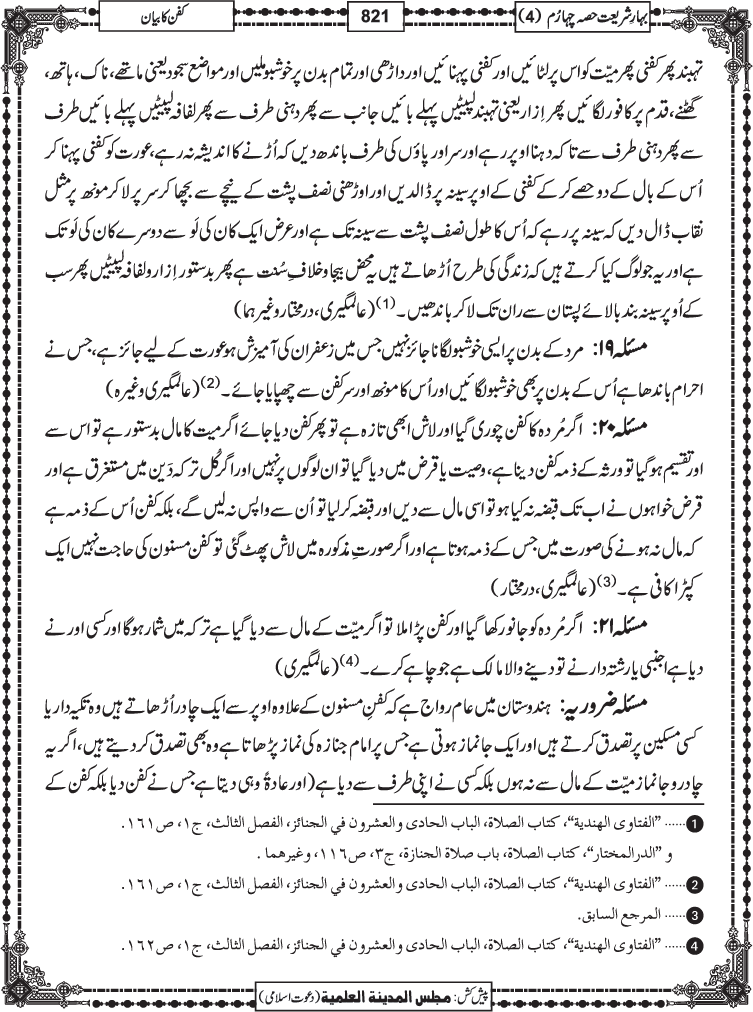 بہارِشریعت حصہ چہارم (4)
821
کفن کا بیان
تہبند پھر کفنی پھر میّت کو اس پر لٹائیں اور کفنی پہنائیں اور داڑھی اور تمام بدن پر خوشبو ملیں اور مواضع سجود یعنی ماتھے، ناک، ہاتھ،
گھٹنے، قدم پر کافور لگائیں پھر اِزار یعنی تہبند لپیٹیں پہلے بائیں جانب سے پھر دہنی طرف سے پھر لفافہ لپیٹیں پہلے بائیں طرف
سے پھر دہنی طرف سے تاکہ دہنا اوپر رہے اور سر اور پاؤں کی طرف باندھ دیں کہ اُڑنے کا اندیشہ نہ رہے، عورت کو کفنی پہنا کر
اُس کے بال کے دو حصے کر کے کفنی کے اوپر سینہ پر ڈال دیں اور اوڑھنی نصف پشت کے نیچے سے بچھا کر سر پر لا کر مونھ پر مثل
نقاب ڈال دیں کہ سینہ پر رہے کہ اُس کا طول نصف پشت سے سینہ تک ہے اور عرض ایک کان کی لَو سے دوسرے کان کی لَو تک
ہے اور یہ جو لوگ کیا کرتے ہیں کہ زندگی کی طرح اُڑھاتے ہیں یہ محض بیجا و خلافِ سُنت ہے پھر بدستور اِزار و لفافہ لپیٹیں پھر سب
کے اُوپر سینہ بند بالائے پستان سے ران تک لا کر باندھیں۔ (1) (عالمگیری، درمختار وغیرہما)
مسئلہ ۱۹: مرد کے بدن پر ایسی خوشبو لگانا جائز نہیں جس میں زعفران کی آمیزش ہو عورت کے لیے جائز ہے، جس نے
احرام باندھا ہے اُس کے بدن پر بھی خوشبو لگائیں اور اُس کا مونھ اور سر کفن سے چھپایا جائے۔ (2) (عالمگیری وغیرہ)
مسئلہ ۲۰: اگر مُردہ کا کفن چوری گیا اور لاش ابھی تازہ ہے تو پھر کفن دیا جائے اگر میت کا مال بدستور ہے تو اس سے
اور تقسیم ہوگیا تو ورثہ کے ذمہ کفن دینا ہے، وصیت یا قرض میں دیا گیا تو ان لوگوں پر نہیں اور اگر کُل ترکہ دَین میں مستغرق ہے اور
قرض خواہوں نے اب تک قبضہ نہ کیا ہو تو اسی مال سے دیں اور قبضہ کرلیا تو اُن سے واپس نہ لیں گے، بلکہ کفن اُس کے ذمہ ہے
کہ مال نہ ہونے کی صورت میں جس کے ذمہ ہوتا ہے اور اگر صورتِ مذکورہ میں لاش پھٹ گئی تو کفن مسنون کی حاجت نہیں ایک
کپڑا کافی ہے۔ (3) (عالمگیری، درمختار)
مسئلہ ۲۱: اگر مُردہ کو جانور کھا گیا اور کفن پڑا ملا تو اگر میّت کے مال سے دیا گیا ہے ترکہ میں شمار ہوگا اور کسی اور نے
دیا ہے اجنبی یا رشتہ دار نے تو دینے والا مالک ہے جو چاہے کرے۔ (4) (عالمگیری)
مسئلہ ضروریہ: ہندوستان میں عام رواج ہے کہ کفنِ مسنون کے علاوہ اوپر سے ایک چادر اُڑھاتے ہیں وہ تکیہ دار یا
کسی مسکین پر تصدق کرتے ہیں اور ایک جانماز ہوتی ہے جس پر امام جنازہ کی نماز پڑھاتا ہے وہ بھی تصدق کر دیتے ہیں، اگر یہ
چادر و جانماز میّت کے مال سے نہ ہوں بلکہ کسی نے اپنی طرف سے دیا ہے (اور عادۃً وہی دیتا ہے جس نے کفن دیا بلکہ کفن کے
1 ...... ”الفتاوی الهندية“، كتاب الصلاة، الباب الحادی والعشرون في الجنائز، الفصل الثالث، ج١، ص١٦١.
و ”الدرالمختار“، كتاب الصلاة، باب صلاة الجنازة، ج٣، ص١١٦، وغيرهما .
2 ...... ”الفتاوی الهندية“، كتاب الصلاة، الباب الحادی والعشرون في الجنائز، الفصل الثالث، ج١، ص١٦١.
3 ...... المرجع السابق.
4 ...... ”الفتاوی الهندية“، كتاب الصلاة، الباب الحادی والعشرون في الجنائز، الفصل الثالث، ج١، ص١٦٢.
پیش کش: مجلس المدینة العلمیة (دعوت اسلامی)